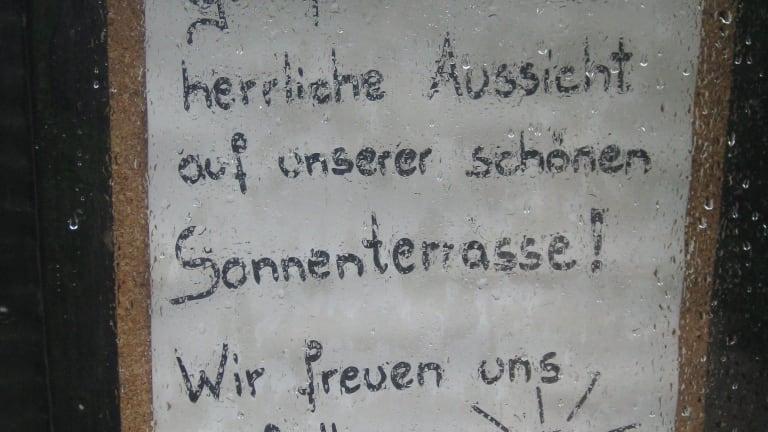 herrliche Aussicht
auf unserer schönen
Sonnenterrasse!
Wir freuen uns